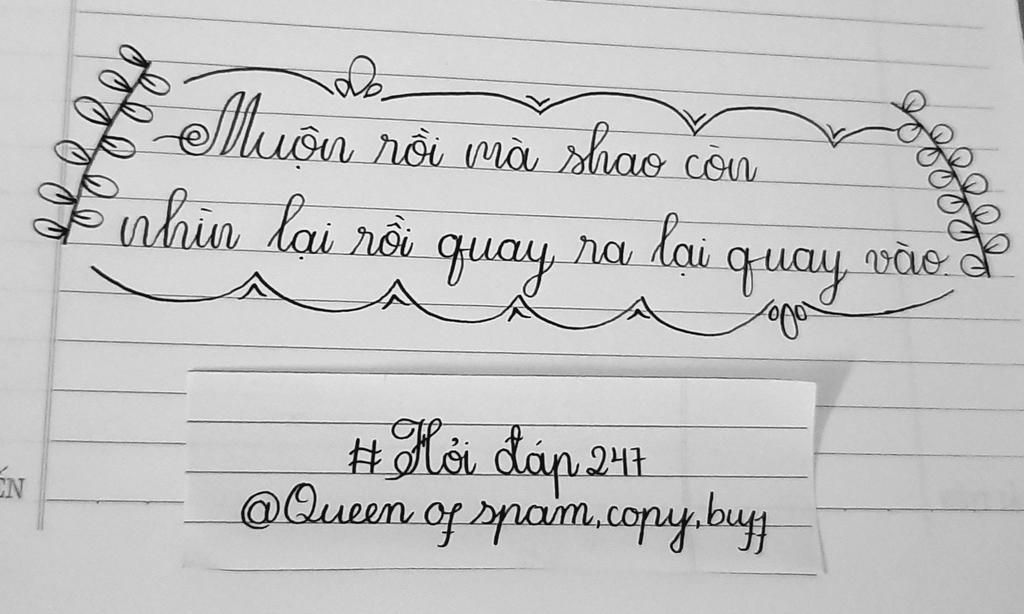 Muộn rồi mà shao còn
nhìn lại rồi quay ra lại quay vào
#Hỏi đáp 247
@Queen of spam,copy,buff
ẾN